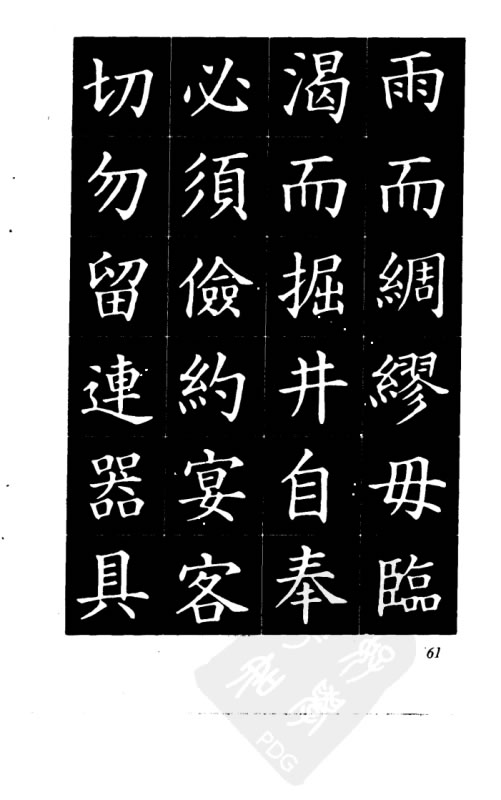 雨而綢繆毋臨
渴而掘井自奉
必須儉約宴客
切勿留連器具
61
PDG